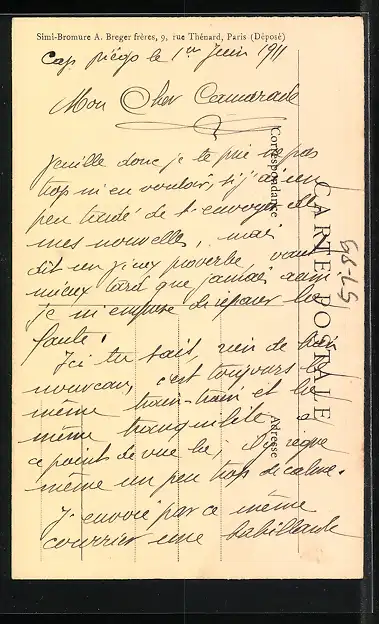 Simi-Bromure A. Breger frères, 9, rue Thénard, Paris (Déposé)
Cap piégo le 1er Juin 1911
Mon Cher Camarade
Veuille donc je te prie ne pas
trop m'en vouloir, si j'ai un
peu tardé de t'envoyer de
mes nouvelles, mais
dit un vieux proverbe, vaut
mieux tard que jamais aussi
je m'empresse de réparer la
faute.
Ici tu sait, rien de bien
nouveau, c'est toujours le
même train-train et la
même tranquilité, a
ce points de vue la, Il y règne
même un peu trop de calme.
J'envoie par ce même
courrier une babillarde
CARTE POSTALE
Correspondance
Adresse